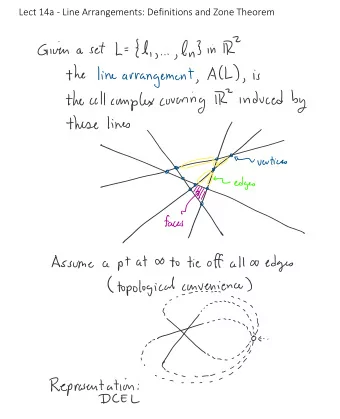 Lect 14a - Line Arrangements: Definitions and Zone Theorem
Given a set L = {l₁, ..., lₙ} in ℝ²
the line arrangement, A(L), is
the cell complex covering ℝ² induced by
these lines
vertices
edges
faces
Assume a pt at ∞ to tie off all ∞ edges
(topological convenience)
Representation:
DCEL